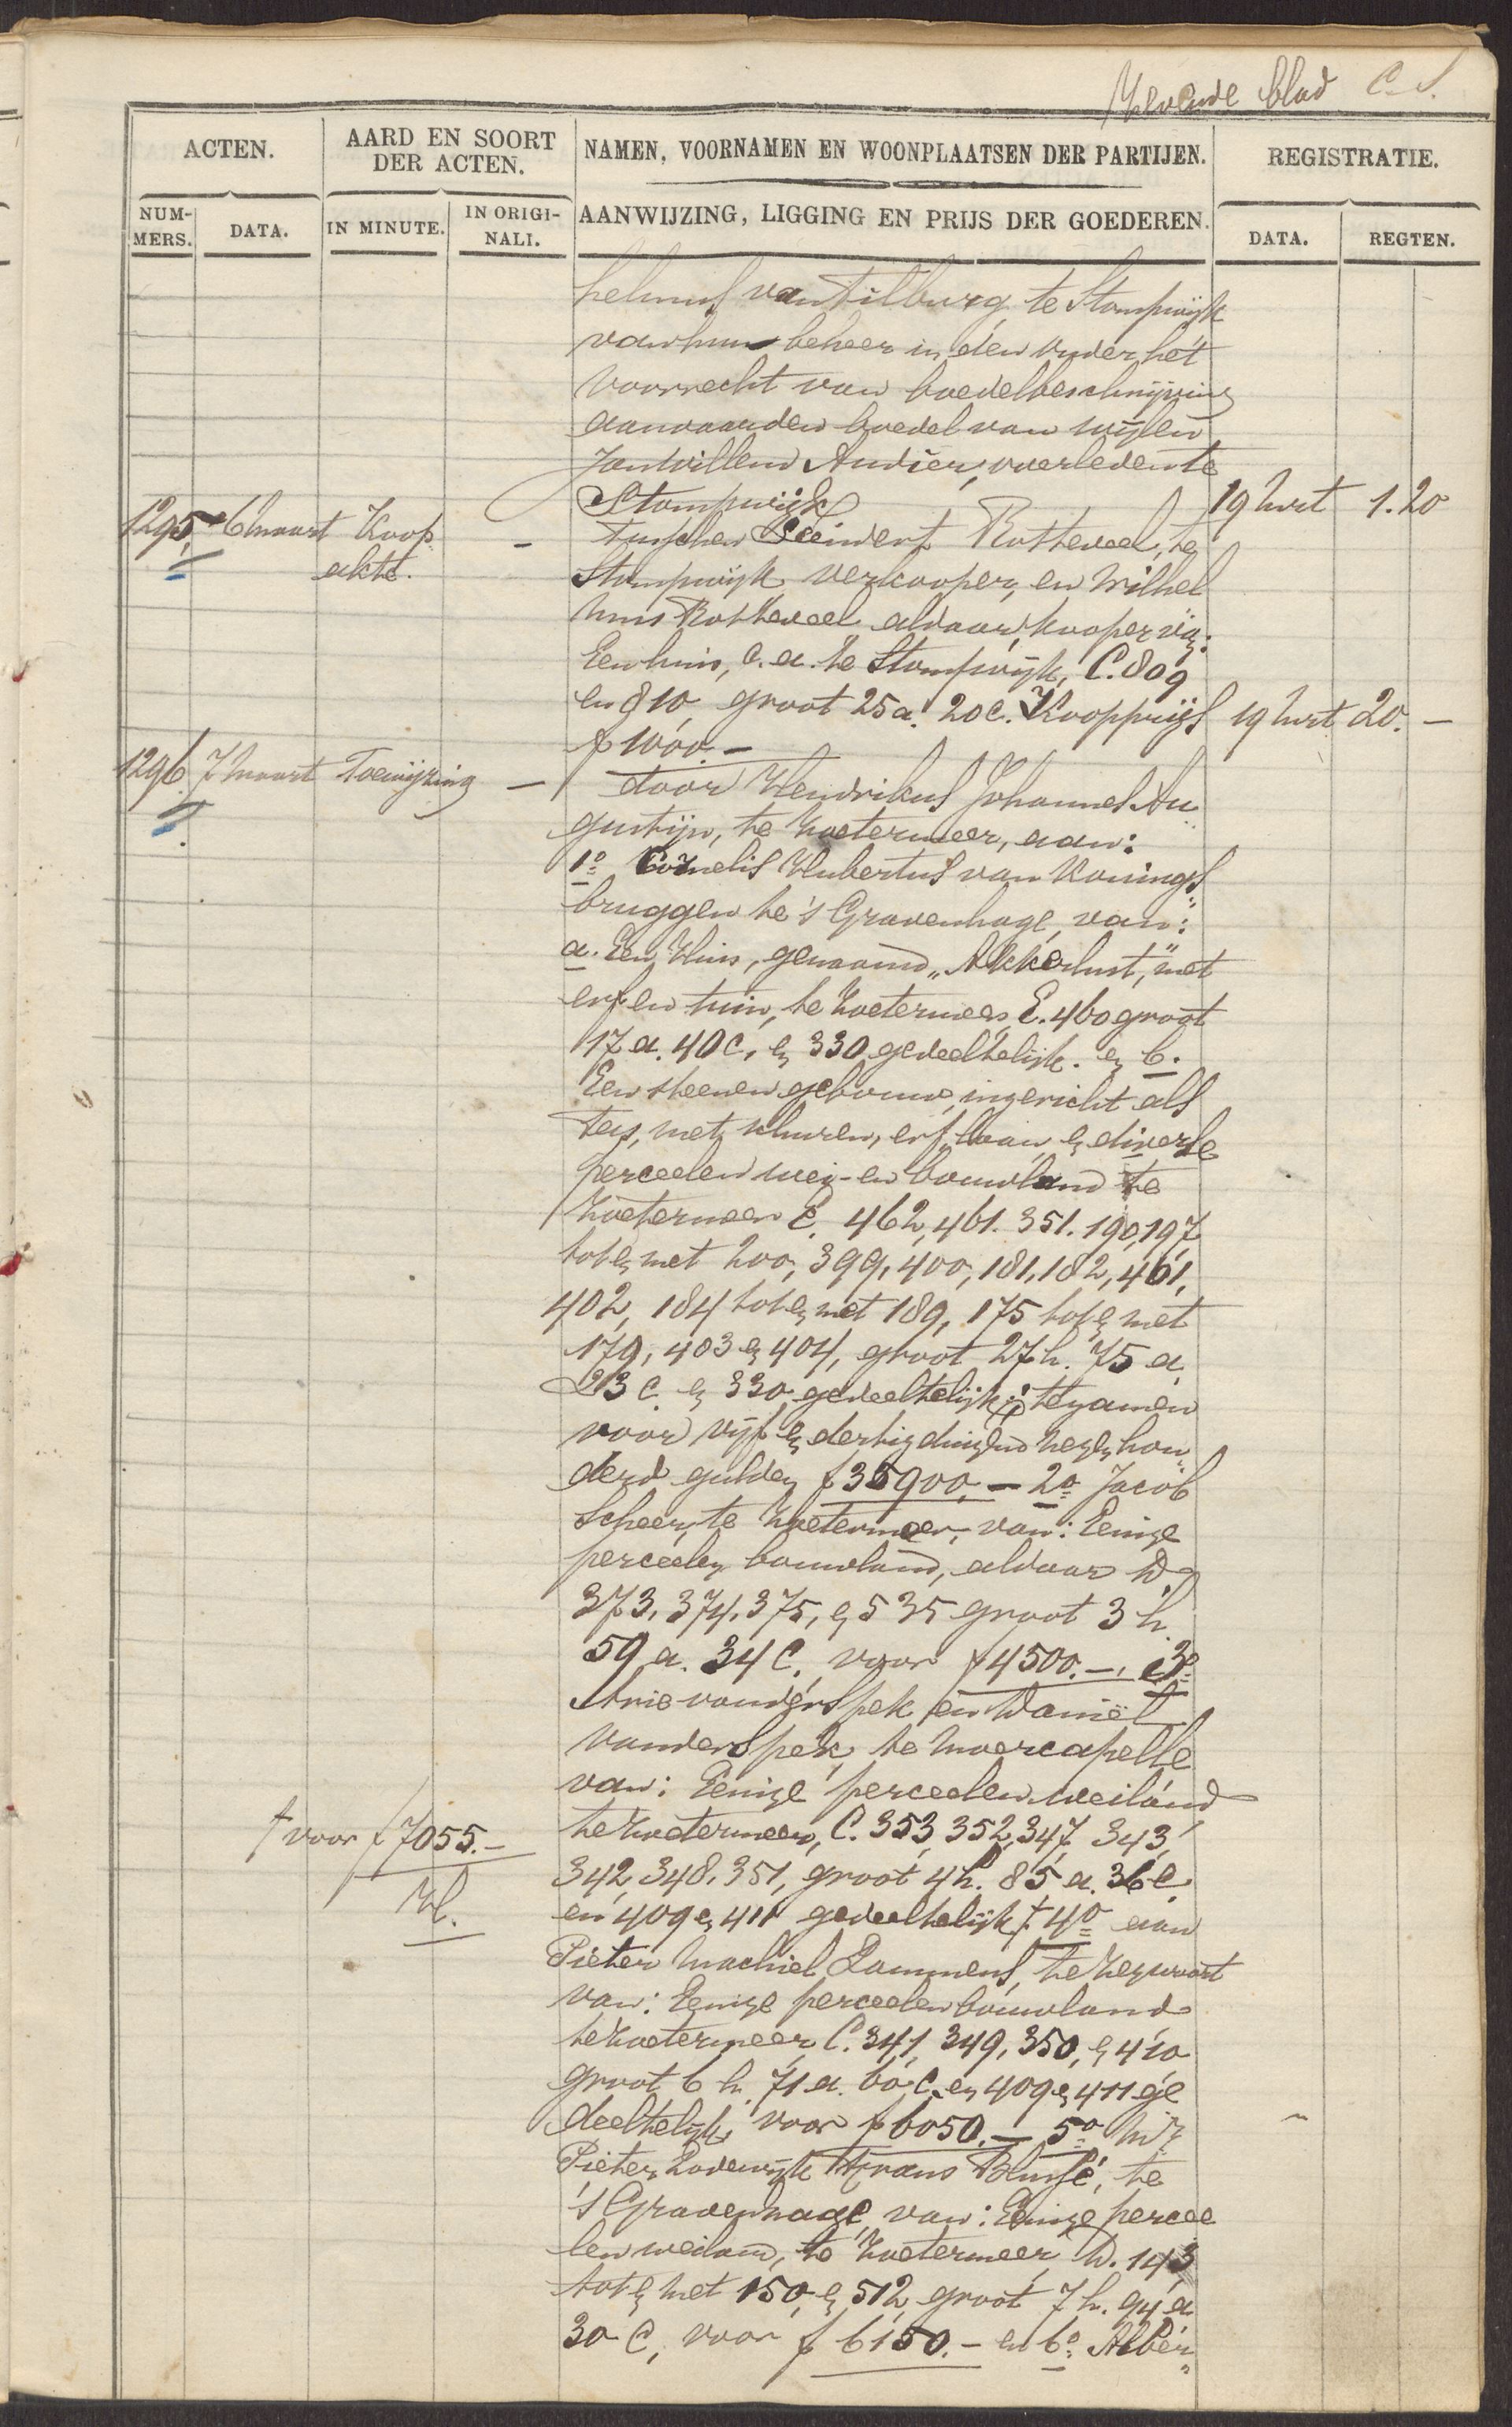 blad C. S.
ACTEN.
AARD EN SOORT DER ACTEN.
NAMEN, VOORNAMEN EN WOONPLAATSEN DER PARTIJEN.
REGISTRATIE.
NUM-MERS.
DATA.
IN MINUTE.
IN ORIGI-NALI.
AANWIJZING, LIGGING EN PRIJS DER GOEDEREN.
DATA.
REGTEN.
helmus van Tilburg, te Stompwijk
van hun beheer in den onder het
voorrecht van boedelbeschrijving
aanvaarden boedel van wijlen
Jan Willem Andier, overleden te
Stompwijk 19 Mrt 1.20
1295, 6 Maart Koop - tusschen Leendert Rotteveel, te
akte. Stompwijk verkooper, en Wilhel
mus Rotteveel aldaar, kooper, v:
Een huis, c.a. te Stompwijk, C. 809
en 810, groot 25 a. 20 c. Koopprijs 19 Mrt 20.-
f 1000.-
1296. 7 Maart Toewijzing - door Hendrikus Johannes Au
gustijn, te Zoetermeer, aan:
1o Cornelis Hubertus van Konings
bruggen te 's Gravenhage, van:
a. Een Huis, genaamd „Akkerlust," met
erf en tuin, te Zoetermeer, E. 460 groot
17 a. 40 c, en 330 gedeeltelijk. en b.
Een steenen gebouw, ingericht als
met schuren, erf, laan, en diverse
perceelen wei- en bouwland te
Zoetermeer E. 462, 461. 351. 190, 197,
tot en met 200, 399, 400, 181, 182, 461,
402, 184 tot en met 189, 175 tot en met
179, 403 en 404, groot 27 h. 75 a.
23 c. en 330 gedeeltelijk; tezamen
voor vijf en dertig duizend negen hon
derd gulden f 35900.- 2o Jacob
Scheer, te Zoetermeer, van: Eenige
perceelen bouwland, aldaar D.
373, 374, 375, en 535 groot 3 h.
59 a. 34 c. voor f 4500.-, 3o
Arie van der Spek en Daniël
van der Spek, te Moercapelle
van: Eenige perceelen weiland
te Zoetermeer, C. 353, 352, 347, 343,
† voor f 7055.-
342, 348, 351, groot 4 h. 85 a. 36 c.
en 409 en 411 gedeeltelijk † 4o aan
Pieter Machiel Lammens, te Zegwaart
van: Eenige perceelen bouwland
te Zoetermeer C. 341, 349, 350, en 410
groot 6 h. 71 a. 60 c. en 409 en 411 ge
deeltelijk, voor f 6050.- 5o Mr
Pieter Lodewijk Frans Blussé, te
's Gravenhage, van: Eenige percee
len weiland, te Zoetermeer, D. 143
tot en met 150, en 512, groot 7 h. 94 a
30 c, voor f 6150.- en 6o: Alber